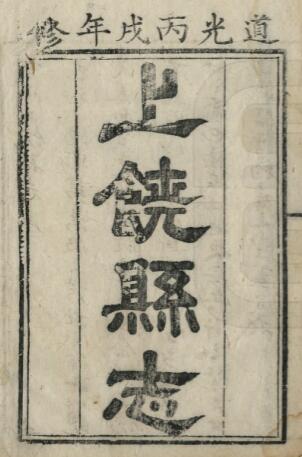 道光丙戌年修
上饒縣志